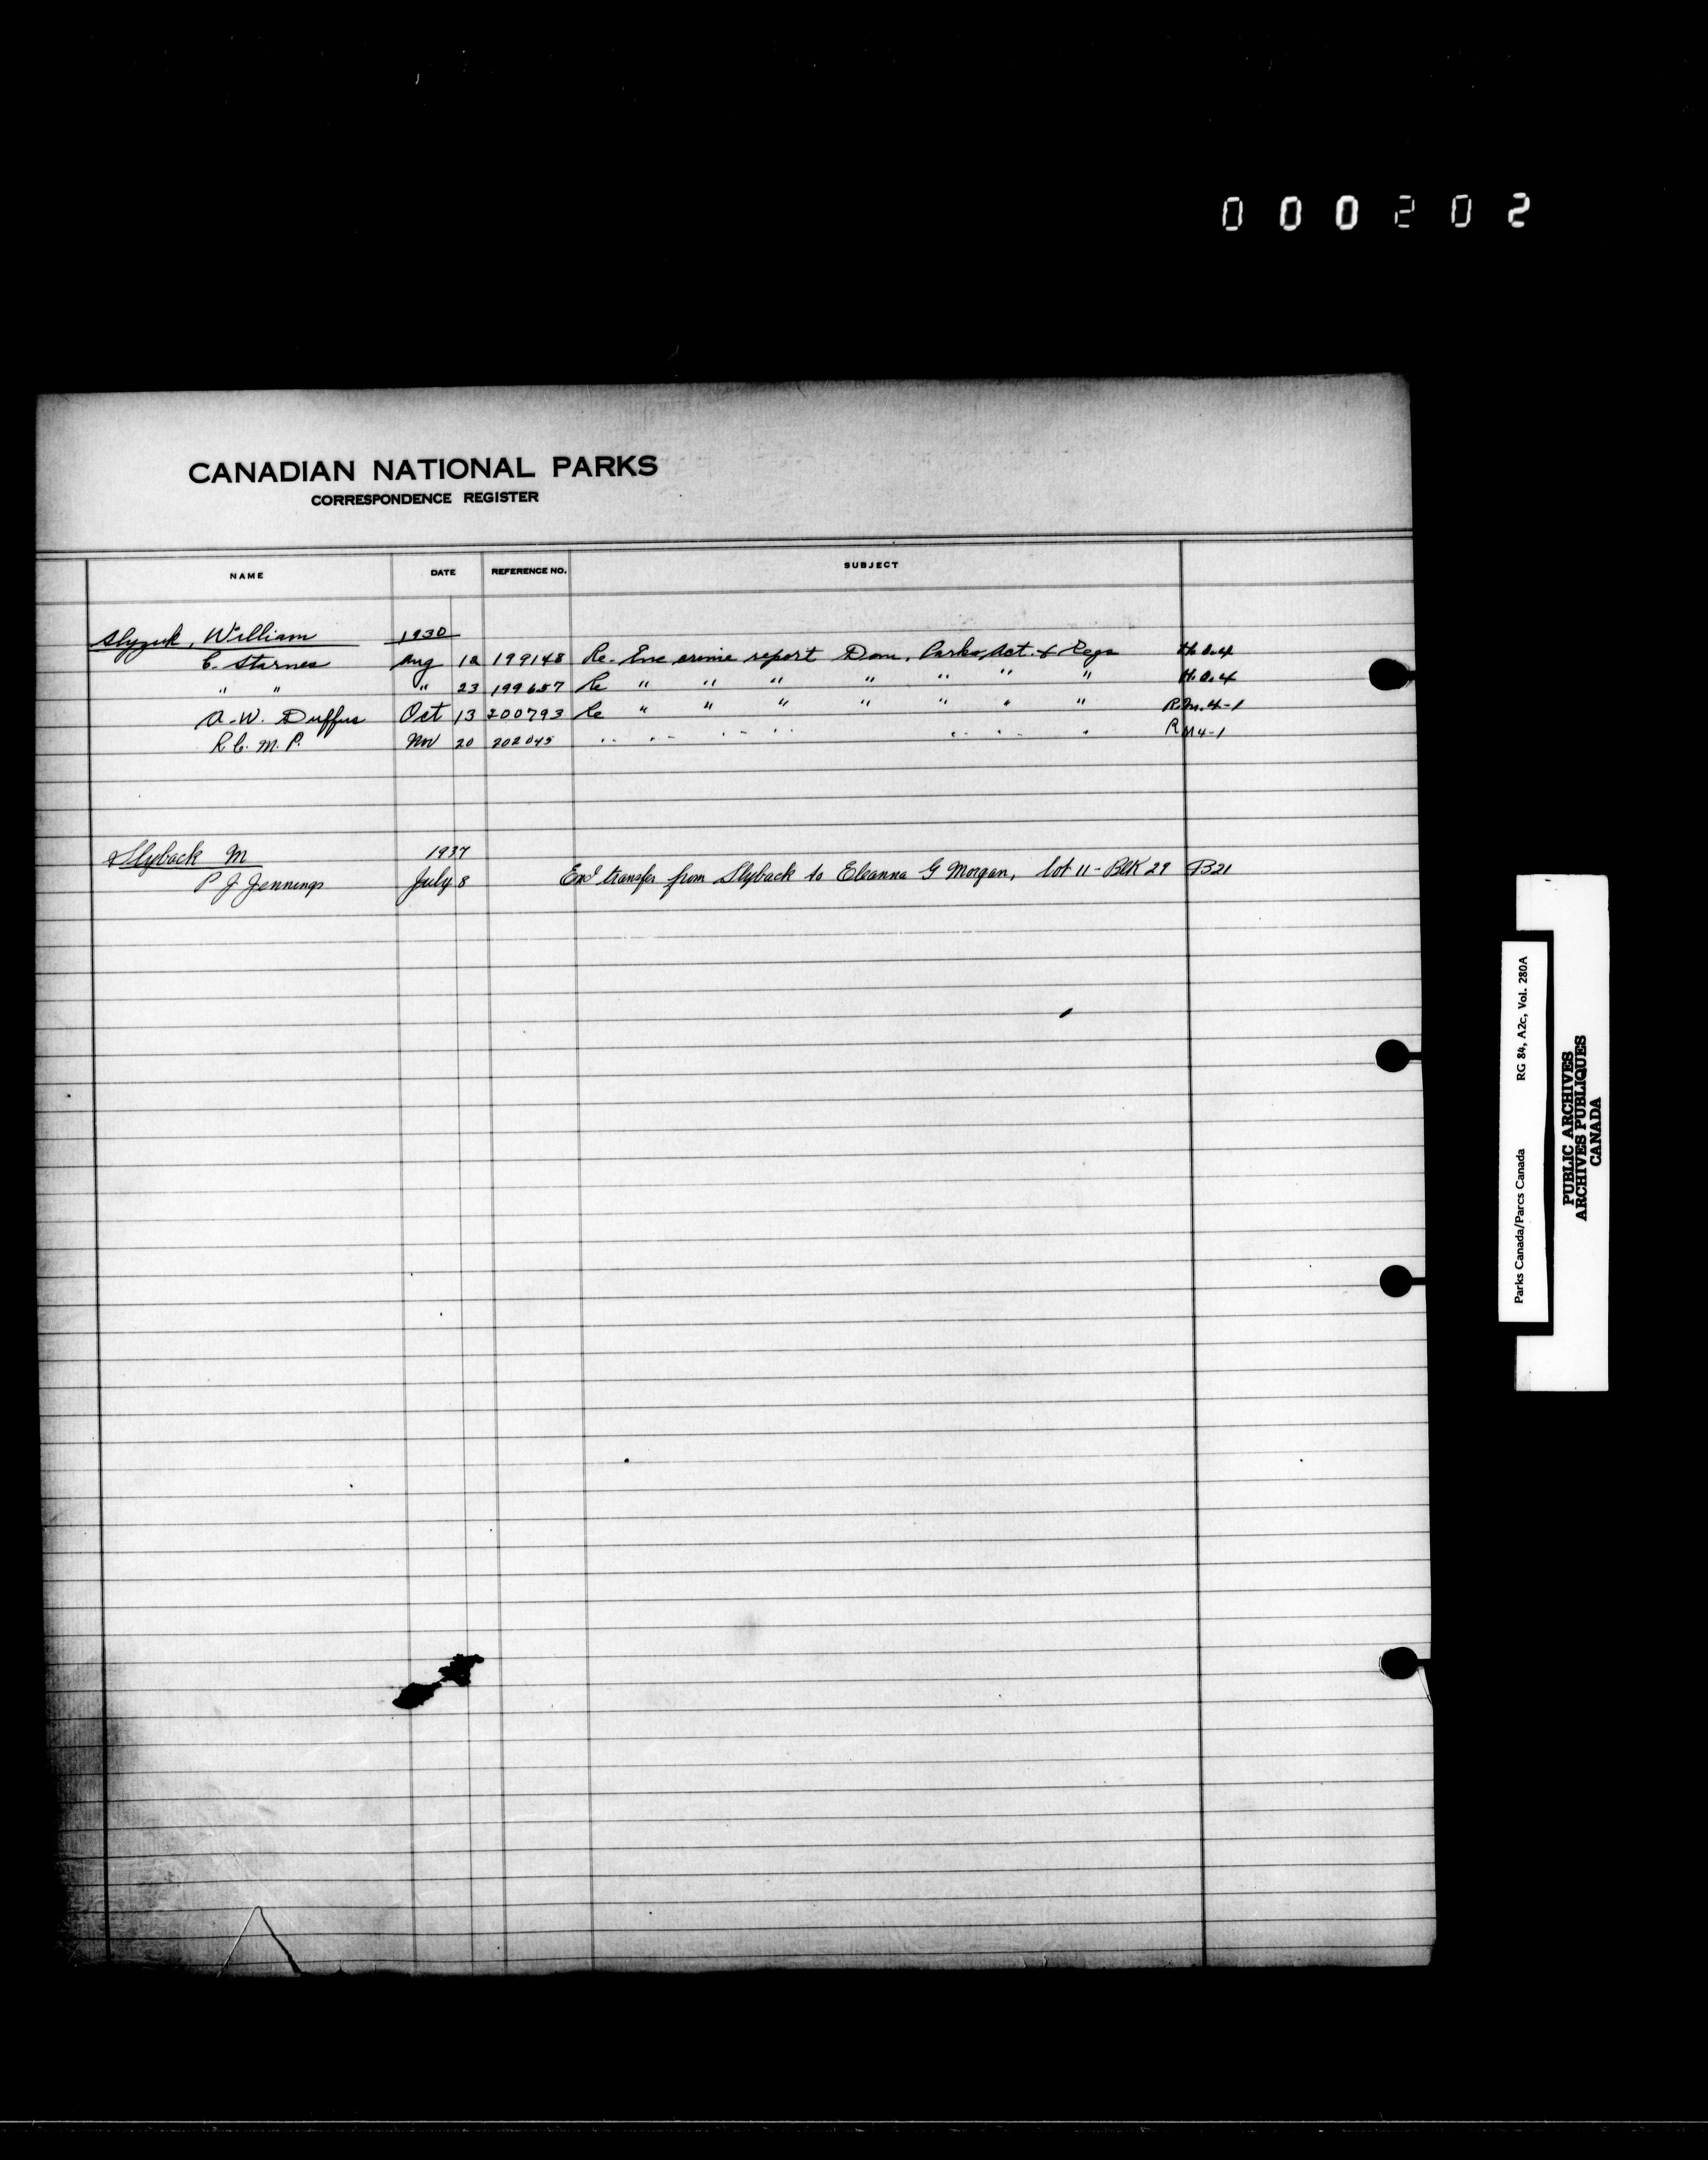 000202
CANADIAN NATIONAL PARKS
CORRESPONDENCE REGISTER
NAME DATE REFERENCE NO. SUBJECT
Slyzuk, William 1930
C. Starnes Aug 12 199148 Re. Enc crime report Dom. Parks Act. & Regs H.O.4
" " " 23 199657 Re " " " " " " " H.O.4
A.W. Duffus Oct 13 200793 Re " " " " " " " R.M.4-1
R.C.M.P. Nov 20 202045 " " " " " " " " RM4-1
Slyback M 1937
P J Jennings July 8 Encl transfer from Slyback to Eleanna G Morgan, Lot 11 - Blk 29 B21
Parks Canada/Parcs Canada RG 84, A2c, Vol. 280A
PUBLIC ARCHIVES
ARCHIVES PUBLIQUES
CANADA